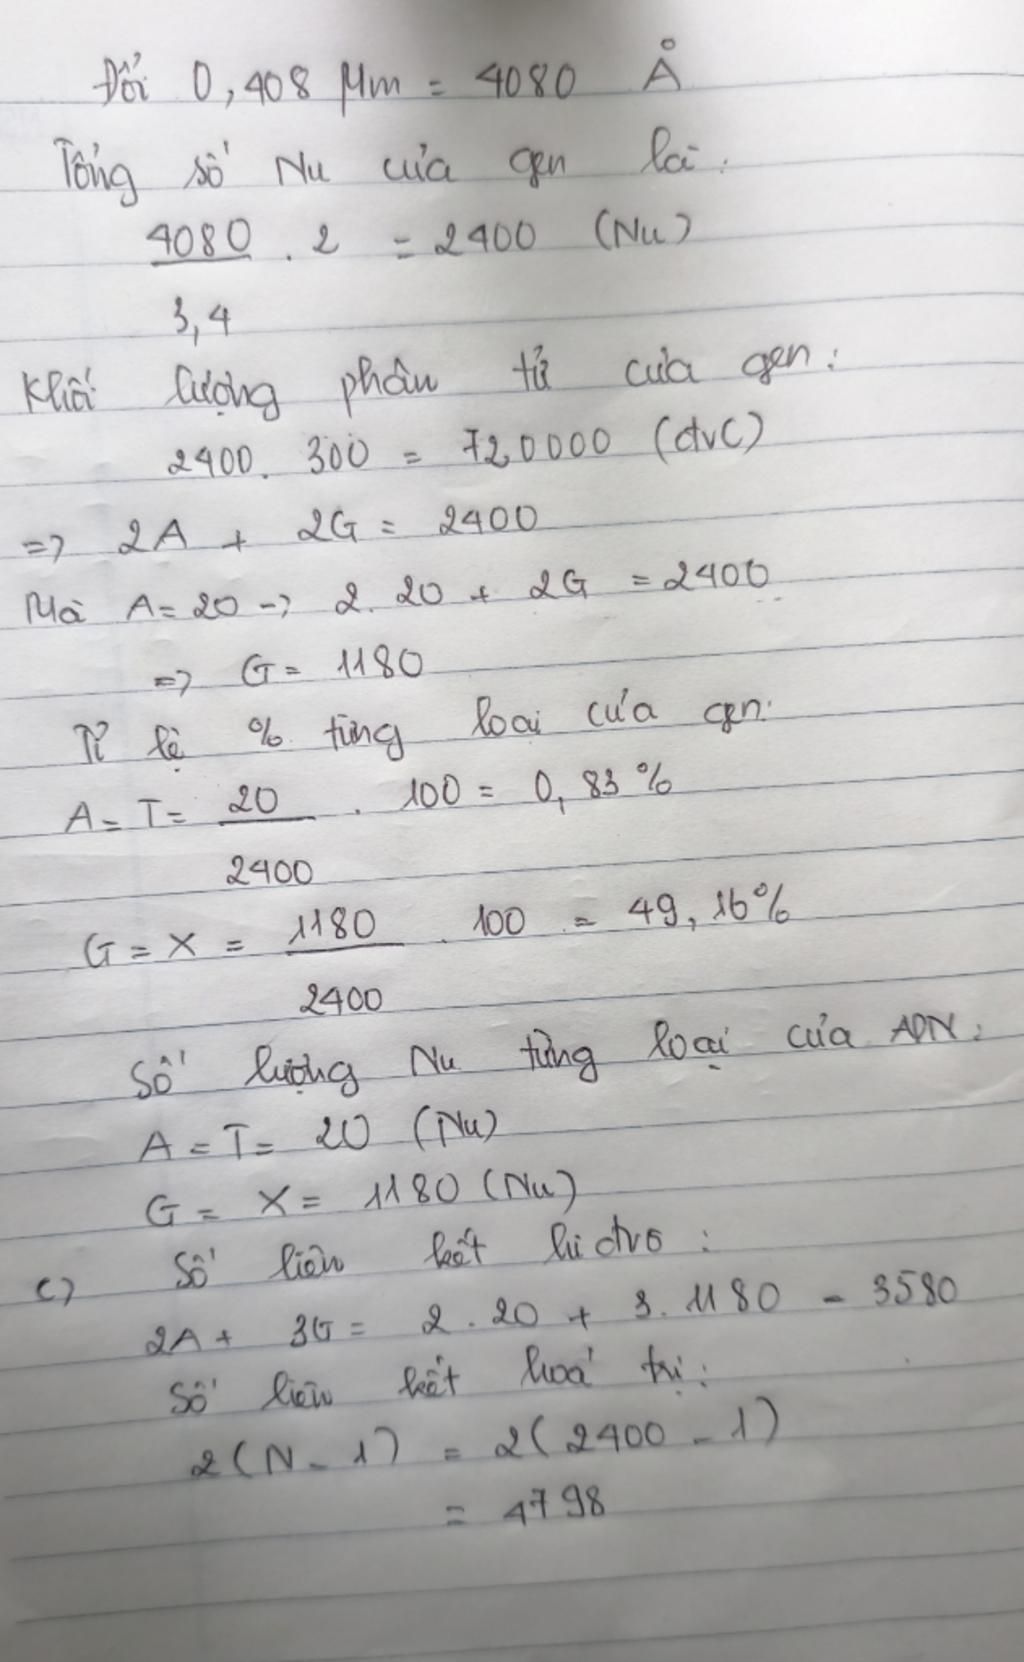 Đổi 0,408 Mm = 4080 Å
Tổng số Nu của gen là:
4080 . 2 = 2400 (Nu)
3,4
Khối lượng phân tử của gen:
2400. 300 = 720000 (đvC)
=> 2A + 2G = 2400
Mà A = 20 -> 2. 20 + 2G = 2400
=> G = 1180
Tỉ lệ % từng loại của gen:
A = T = 20 . 100 = 0,83%
2400
G = X = 1180 . 100 = 49,16%
2400
Số lượng Nu từng loại của ADN:
A = T = 20 (Nu)
G = X = 1180 (Nu)
c) Số liên kết hiđrô :
2A + 3G = 2 . 20 + 3. 1180 = 3580
Số liên kết hoá trị:
2(N - 1) = 2(2400 - 1)
= 4798